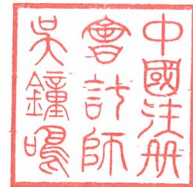 中國注册
會計師
吳鐘鳴